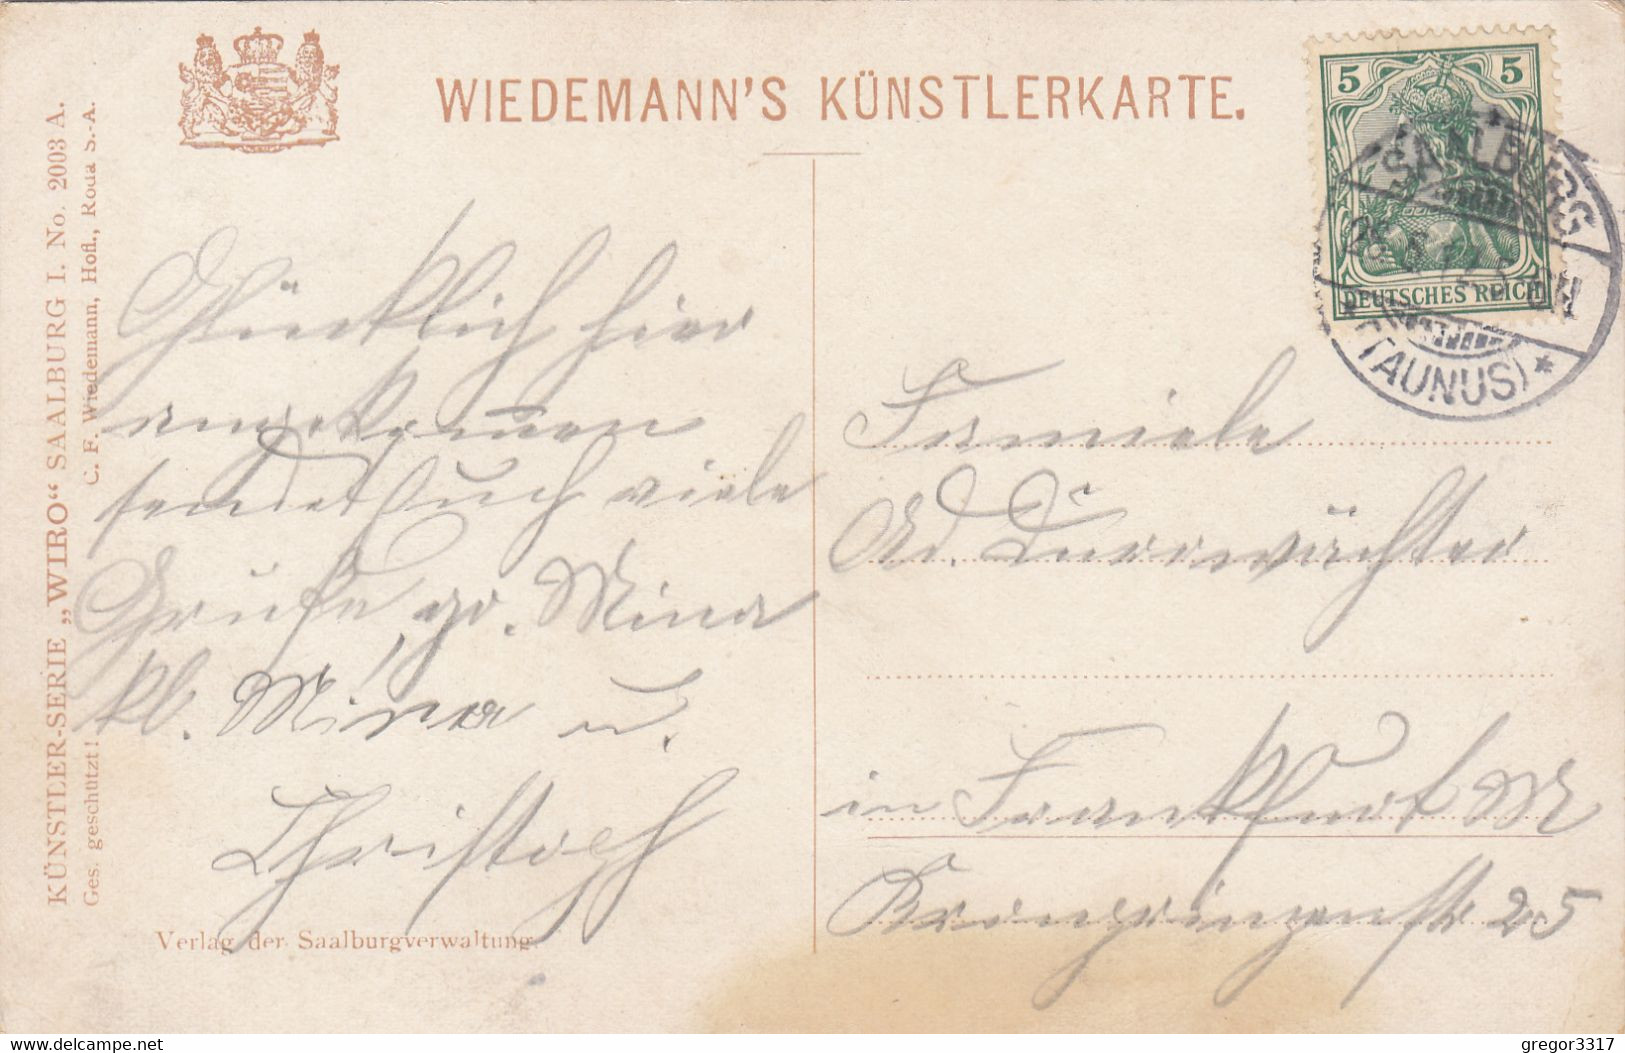 WIEDEMANN'S KÜNSTLERKARTE.
5 5
DEUTSCHES REICH
SAALBURG
(TAUNUS) *
KÜNSTLER-SERIE „WIRO“ SAALBURG I. No. 2003 A.
Ges. geschützt! C. F. Wiedemann, Hofl., Roda S.-A.
Glücklich hier
angekommen
sendet Euch viele
Grüße gr. Mina
kl. Mina u.
Christoph
Verlag der Saalburgverwaltung.
Familie
Ad. Dürrwächter
in Frankfurt M
Kronprinzenstr 25
gregor3317
https://www.delcampe.net